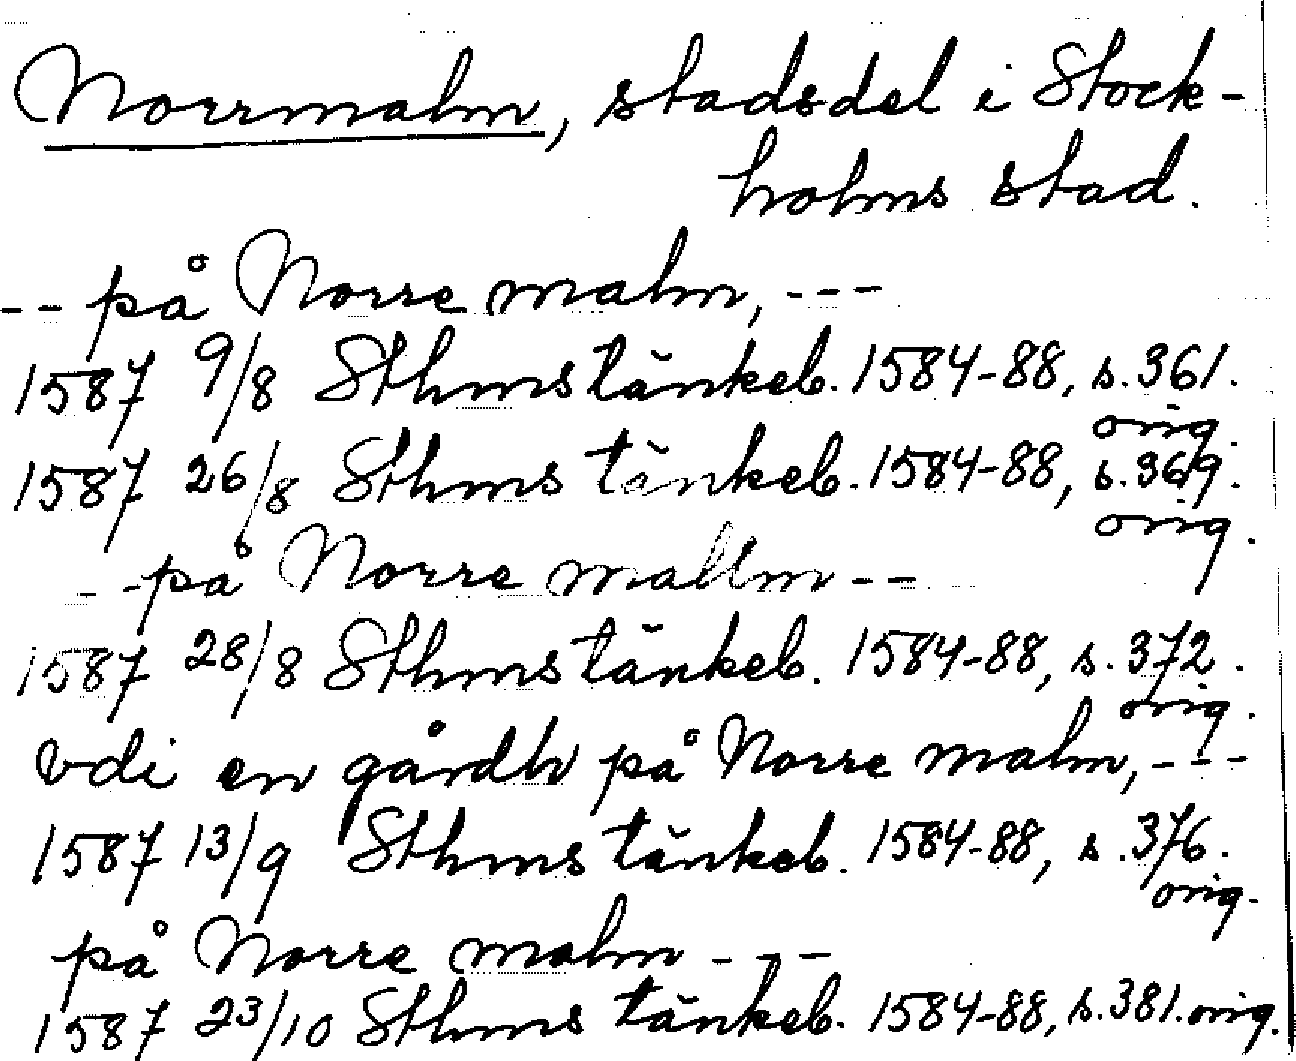 Norrmalm, stadsdel i Stock-
holms stad.
-- på Norre malm, ---
1587 9/8 Sthms tänkeb. 1584-88, s. 361.
orig.
1587 26/8 Sthms tänkeb. 1584-88, s. 369.
orig.
-- på Norre mallm --
1587 28/8 Sthms tänkeb. 1584-88, s. 372.
orig.
vdi en gårdh på Norre malm, ---
1587 13/9 Sthms tänkeb. 1584-88, s. 376.
orig.
på Norre malm ---
1587 23/10 Sthms tänkeb. 1584-88, s. 381. orig.